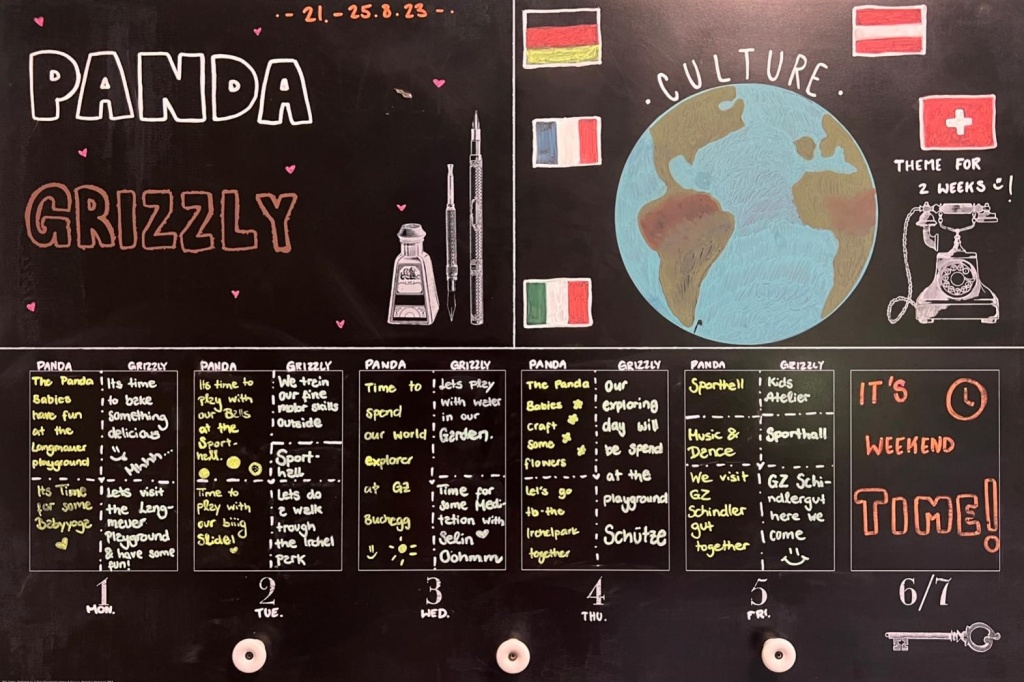 21. - 25.8.23
PANDA
GRIZZLY
· CULTURE ·
THEME FOR
2 WEEKS !
PANDA
The Panda
Babies
have fun
at the
Langmauer
playground
Its Time
for some
Babyyoga
GRIZZLY
Its time
to bake
something
delicious
Mhhh...
Lets visit
the Lang-
mauer
Playground
& have some
fun!
1
MON.
PANDA
Its time to
play with
our Balls
at the
Sport-
hall.
Time to
play with
our biiig
Slide!
GRIZZLY
We train
our fine
motor skills
outside
Sport-
hall
Lets do
a walk
trough
the Irchel
Park
2
TUE.
PANDA
Time to
spend
our world
explorer
at GZ
Buchegg
GRIZZLY
Lets play
with water
in our
Garden.
Time for
some Medi-
tation with
Selin
Oohmm
3
WED.
PANDA
The Panda
Babies
craft
some
flowers
Let's go
to the
Irchelpark
together
GRIZZLY
Our
exploring
day will
be spend
at the
playground
Schütze
4
THU.
PANDA
Sporthall
Music &
Dance
We visit
GZ
Schindler
gut
together
GRIZZLY
Kids
Atelier
Sporthall
GZ Schi-
ndlergut
here we
come
5
FRI.
IT'S
WEEKEND
TIME!
6/7